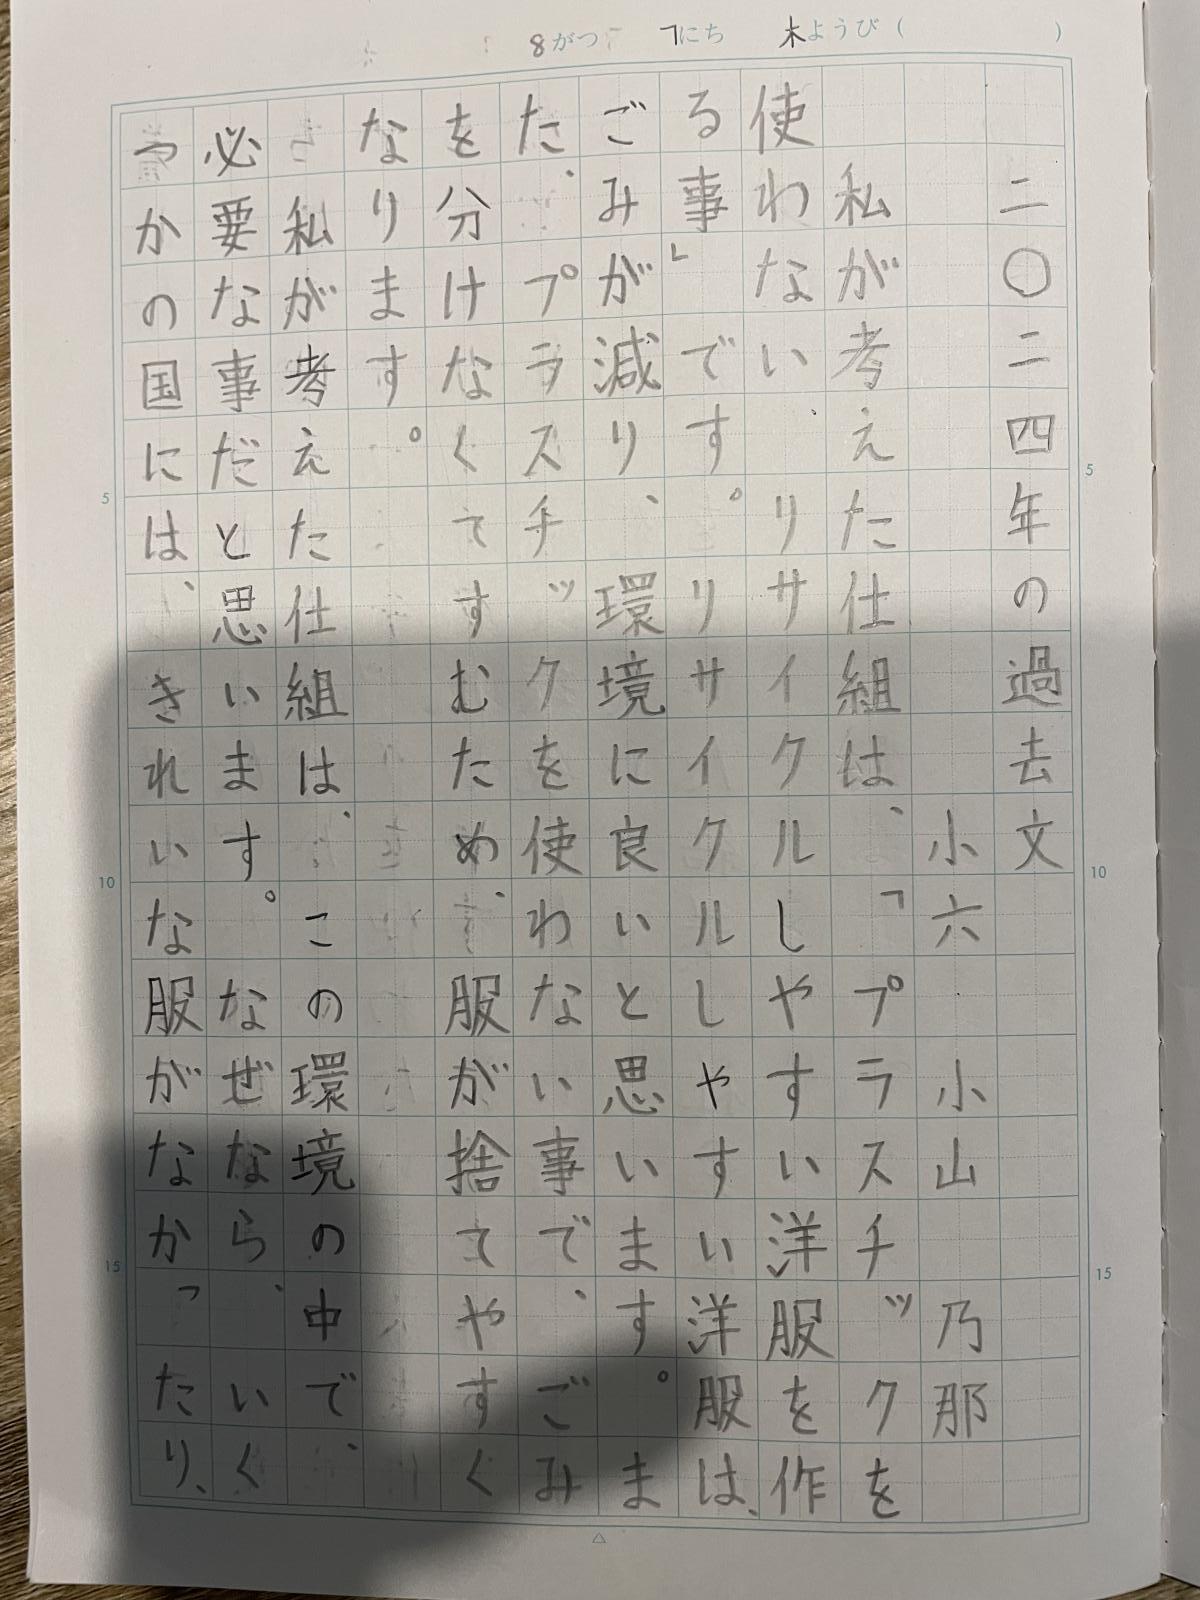 8がつ 7にち 木ようび( )
二〇二四年の過去文
小六 小山 乃那
私が考えた仕組は、「プラスチックを
使わない、リサイクルしやすい洋服を作
る事」です。リサイクルしやすい洋服は、
ごみが減り、環境に良いと思います。ま
た、プラスチックを使わない事で、ごみ
を分けなくてすむため、服が捨てやすく
なります。
私が考えた仕組は、この環境の中で、
必要な事だと思います。なぜなら、いく
つかの国には、きれいな服がなかったり、
5
10
15
5
10
15